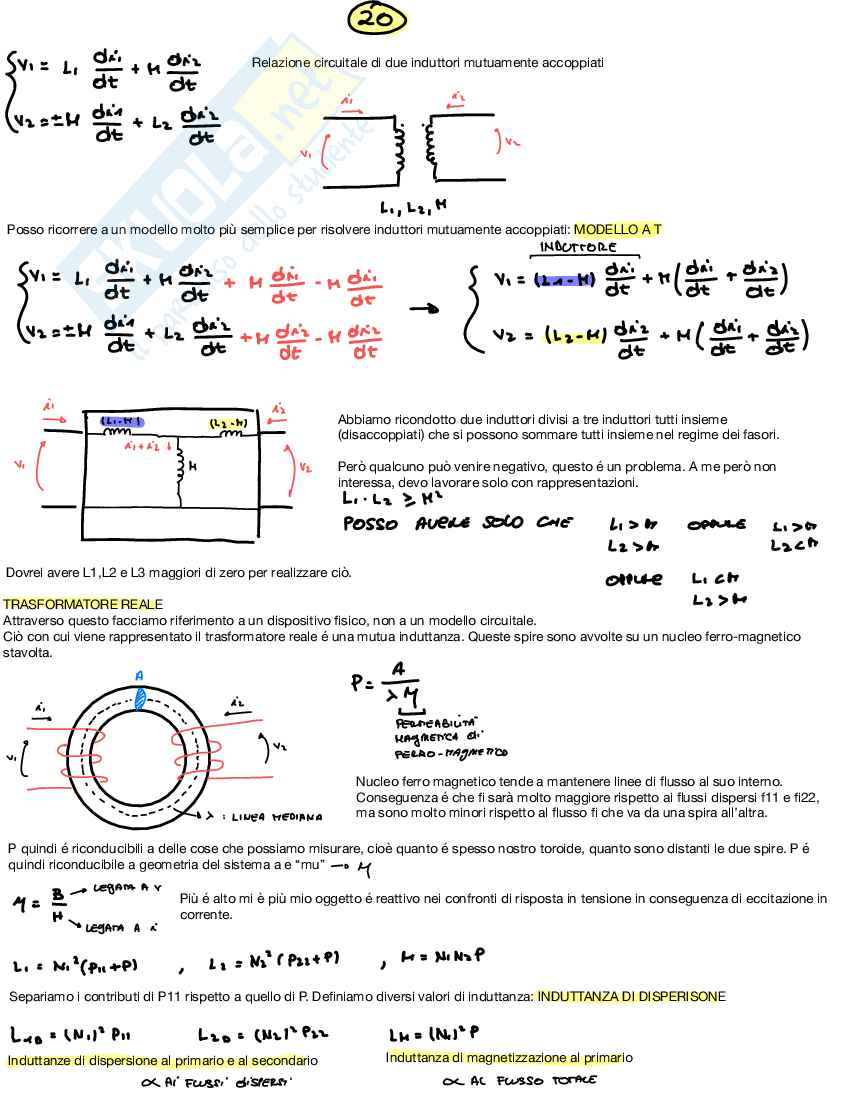 20
v1 = L1 di1/dt + M di2/dt
Relazione circuitale di due induttori mutuamente accoppiati
v2 = ±M di1/dt + L2 di2/dt
i1 i2
v1 v2
L1, L2, M
Posso ricorrere a un modello molto più semplice per risolvere induttori mutuamente accoppiati: MODELLO A T
INDUTTORE
v1 = L1 di1/dt + M di2/dt + M di1/dt - M di1/dt → v1 = (L1-M) di1/dt + M (di1/dt + di2/dt)
v2 = ±M di1/dt + L2 di2/dt + M di2/dt - M di2/dt v2 = (L2-M) di2/dt + M (di1/dt + di2/dt)
i1 (L1-M) (L2-M) i2
i1+i2
v1 M v2
Abbiamo ricondotto due induttori divisi a tre induttori tutti insieme
(disaccoppiati) che si possono sommare tutti insieme nel regime dei fasori.
Però qualcuno può venire negativo, questo é un problema. A me però non
interessa, devo lavorare solo con rappresentazioni.
L1 · L2 ≥ M²
POSSO AVERE SOLO CHE L1>M OPPURE L1>M
L2>M L2<M
Dovrei avere L1,L2 e L3 maggiori di zero per realizzare ciò.
OPPURE L1<M
L2>M
TRASFORMATORE REALE
Attraverso questo facciamo riferimento a un dispositivo fisico, non a un modello circuitale.
Ciò con cui viene rappresentato il trasformatore reale é una mutua induttanza. Queste spire sono avvolte su un nucleo ferro-magnetico
stavolta.
A
i1 i2
v1 v2
λ : LINEA MEDIANA
P = A / λ μ
PERMEABILITÀ
MAGNETICA di
FERRO-MAGNETICO
Nucleo ferro magnetico tende a mantenere linee di flusso al suo interno.
Conseguenza é che fi sarà molto maggiore rispetto ai flussi dispersi f11 e fi22,
ma sono molto minori rispetto al flusso fi che va da una spira all'altra.
P quindi é riconducibili a delle cose che possiamo misurare, cioè quanto é spesso nostro toroide, quanto sono distanti le due spire. P é
quindi riconducibile a geometria del sistema a e "mu" → μ
μ = B/H → LEGATA A v
→ LEGATA A i
Più é alto mi è più mio oggetto é reattivo nei confronti di risposta in tensione in conseguenza di eccitazione in
corrente.
L1 = N1² (P11+P) , L2 = N2² (P22+P) , M = N1N2P
Separiamo i contributi di P11 rispetto a quello di P. Definiamo diversi valori di induttanza: INDUTTANZA DI DISPERISONE
L1D = (N1)² P11 L2D = (N2)² P22 LM = (N1)² P
Induttanze di dispersione al primario e al secondario
Induttanza di magnetizzazione al primario
∝ AI FLUSSI DISPERSI
∝ AL FLUSSO TOTALE
SKUOLA.net
il paradiso dello studente